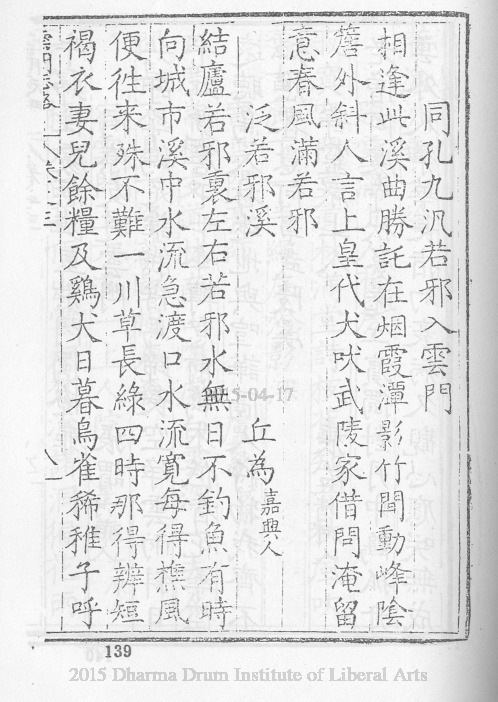 同孔九汎若邪入雲門
相逢此溪曲勝託在烟霞潭影竹間動峰陰
簷外斜人言上皇代犬吠武陵家借問淹留
意春風滿若邪
泛若邪溪
丘為嘉興人
結廬若邪裏左右若邪水無日不釣魚有時
向城市溪中水流急渡口水流寬每得樵風
便往來殊不難一川草長綠四時那得辨短
褐衣妻兒餘糧及鷄犬日暮鳥雀稀稚子呼
卷之三
八
15-04-17
139
2015 Dharma Drum Institute of Liberal Arts